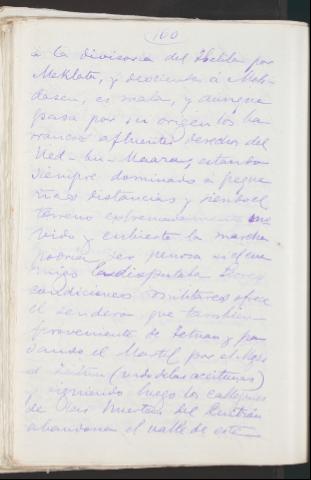 160
à la divisoria del Hetila por
Meklata, y desciende á Meh-
dasen, es mala, y aunque
pasa por su origen los ba-
rrancos afluentes derechos del
Ued-bu-Maaras, estando
siempre dominado á peque
ñas distancias y siendo el
terreno extremamente mo
vido y cubierto la marcha
podria ser penosa si el ene
migo la disputaba.
condiciones militares ofrece
el sendero que tambien
proveniente de Tetuan y pa
sando el Martil por el
el (vado de las aceitunas)
y siguiendo luego los callejones
de las huertas del
abandona el valle de este